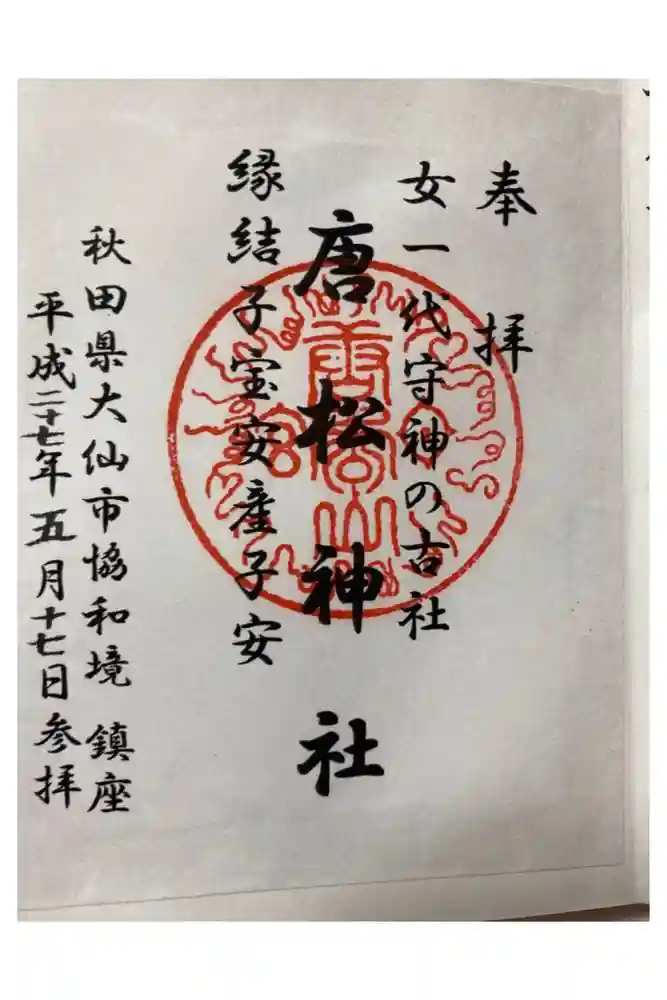 奉拝
女一代守神の古社
唐松神社
縁結子宝安産子安
秋田県大仙市協和境 鎮座
平成二十七年五月十七日参拝